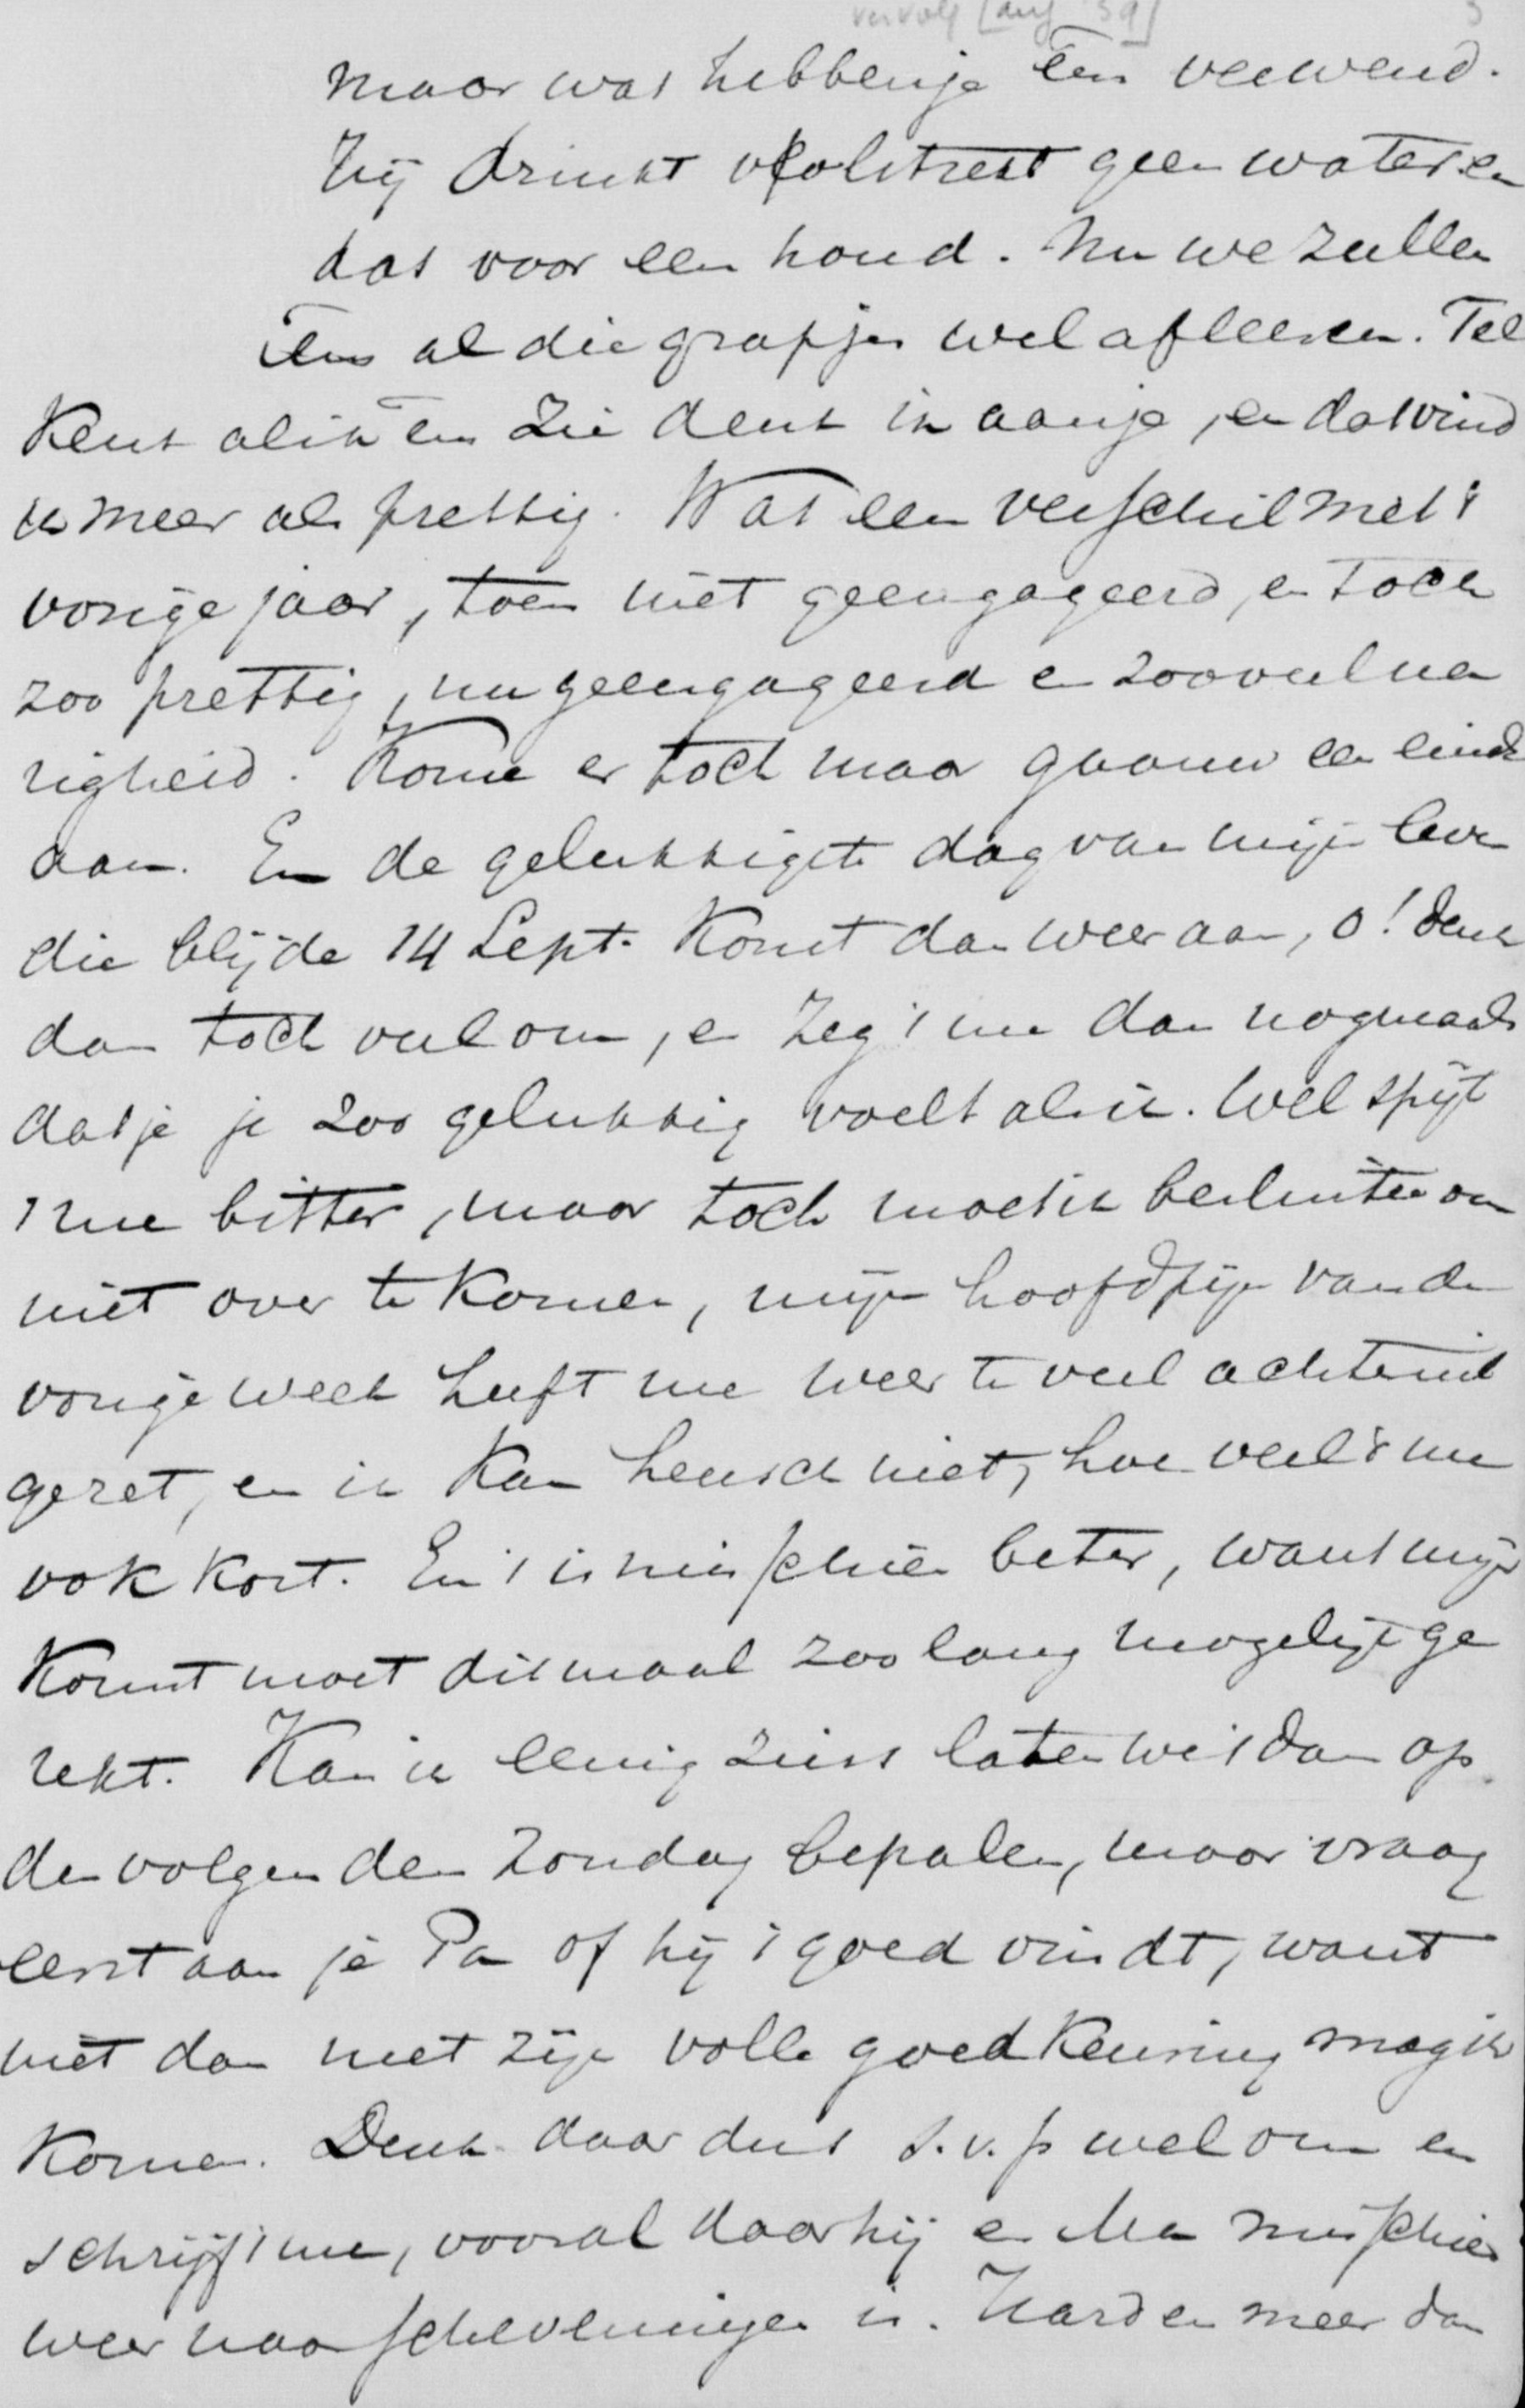 vervolg [aug '59] 3
maar was hebben je hem verwend.
Hij drinkt volstrekt geen water en
dat voor een hond. Nu we zullen
hem al die grapjes wel afleeren. Tel
kens als ik hem zie denk ik aan je, en dat vind
ik meer als prettig. Wat een verschil met 't
vorige jaar, toen niet geengageerd, en toch
zoo prettig, nu geengageerd en zooveel na
righeid. Kome er toch maar gaauw een einde
aan. En de gelukkigste dag van mijn leven
die blijde 14 Sept. komt dan weer aan, o! denk
dan toch veel om, en zeg 't me dan nogmaals
dat je je zoo gelukkig voelt als ik. Wel spijt
't me bitter, maar toch moet ik besluiten om
niet over te komen, mijn hoofdpijn van de
vorige week heeft me weer te veel achteruit
gezet, en ik kan heusch niet, hoe veel 't me
ook kost. En 't is misschien beter, want mijn
komst moet ditmaal zoo lang mogelijk ge
rekt. Kan ik eenigzins laten we 't dan op
den volgenden Zondag bepalen, maar vraag
eerst aan je Pa of hij 't goed vindt, want
niet dan met zijn volle goedkeuring mag ik
komen. Denk daar dus s.v.p wel om en
schrijf 't me, vooral daar hij en Ma misschien
weer naar Scheveningen is. Harden meer dan